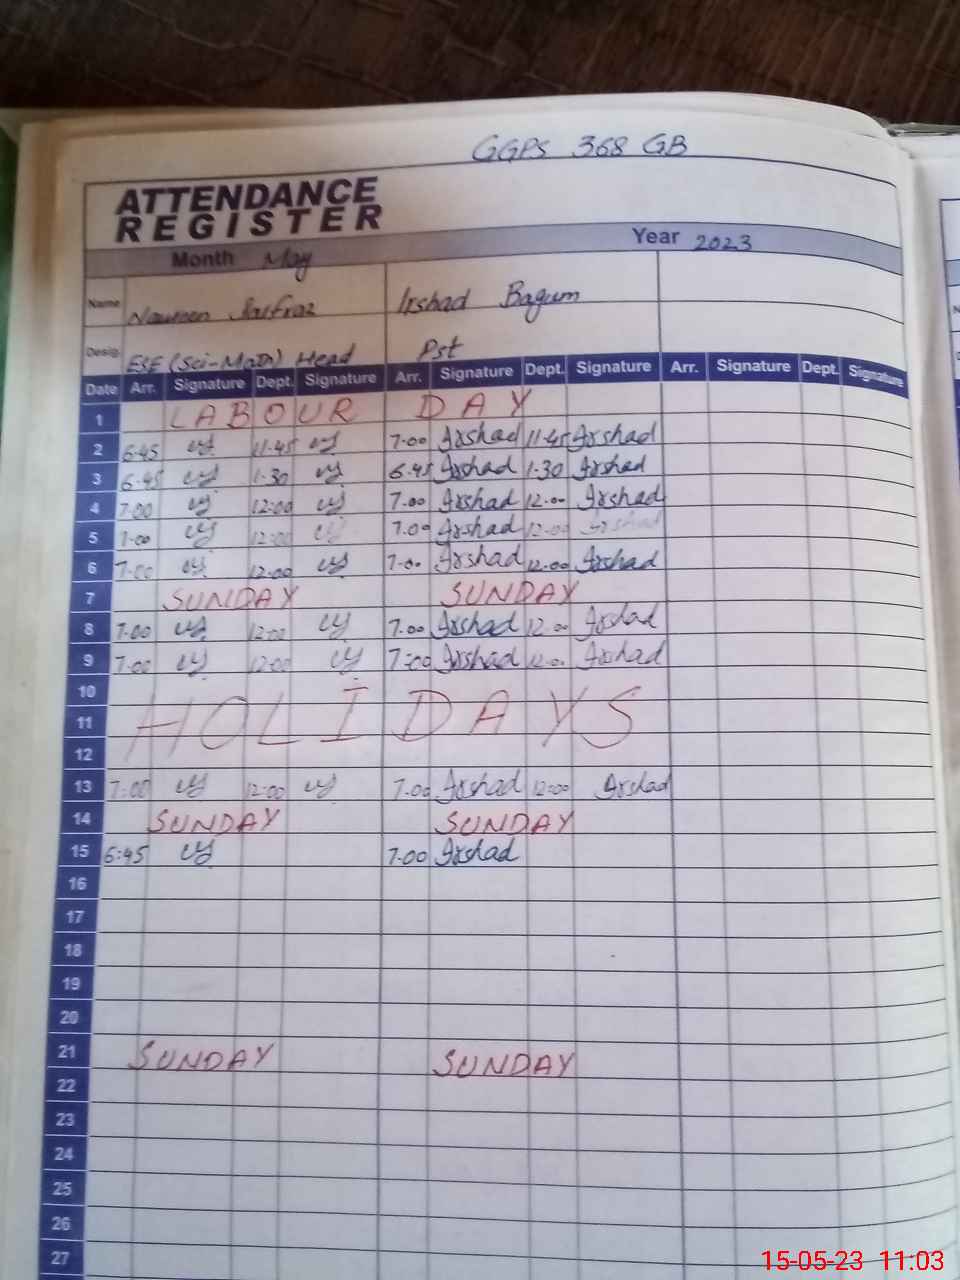 GGPS 368 GB
ATTENDANCE
REGISTER
Month May Year 2023
Name Nawreen Sarfraz Irshad Bagum
Desig. ESE (Sci-Math) Head Pst
Date Arr. Signature Dept. Signature Arr. Signature Dept. Signature Arr. Signature Dept. Signature
1 LABOUR DAY
2 6.45 11.45 7.00 Irshad 11.45 Irshad
3 6.45 1.30 6.45 Irshad 1.30 Irshad
4 7.00 12:00 7.00 Irshad 12.00 Irshad
5 7.00 12:00 7.00 Irshad 12:00 Irshad
6 7.00 12:00 7.00 Irshad 12.00 Irshad
7 SUNDAY SUNDAY
8 7.00 12:00 7.00 Irshad 12.00 Irshad
9 7.00 12:00 7:00 Irshad 12.00 Irshad
10
11 HOLIDAYS
12
13 7:00 12:00 7.00 Irshad 12:00 Irshad
14 SUNDAY SUNDAY
15 6:45 7.00 Irshad
16
17
18
19
20
21 SUNDAY SUNDAY
22
23
24
25
26
27
15-05-23 11:03